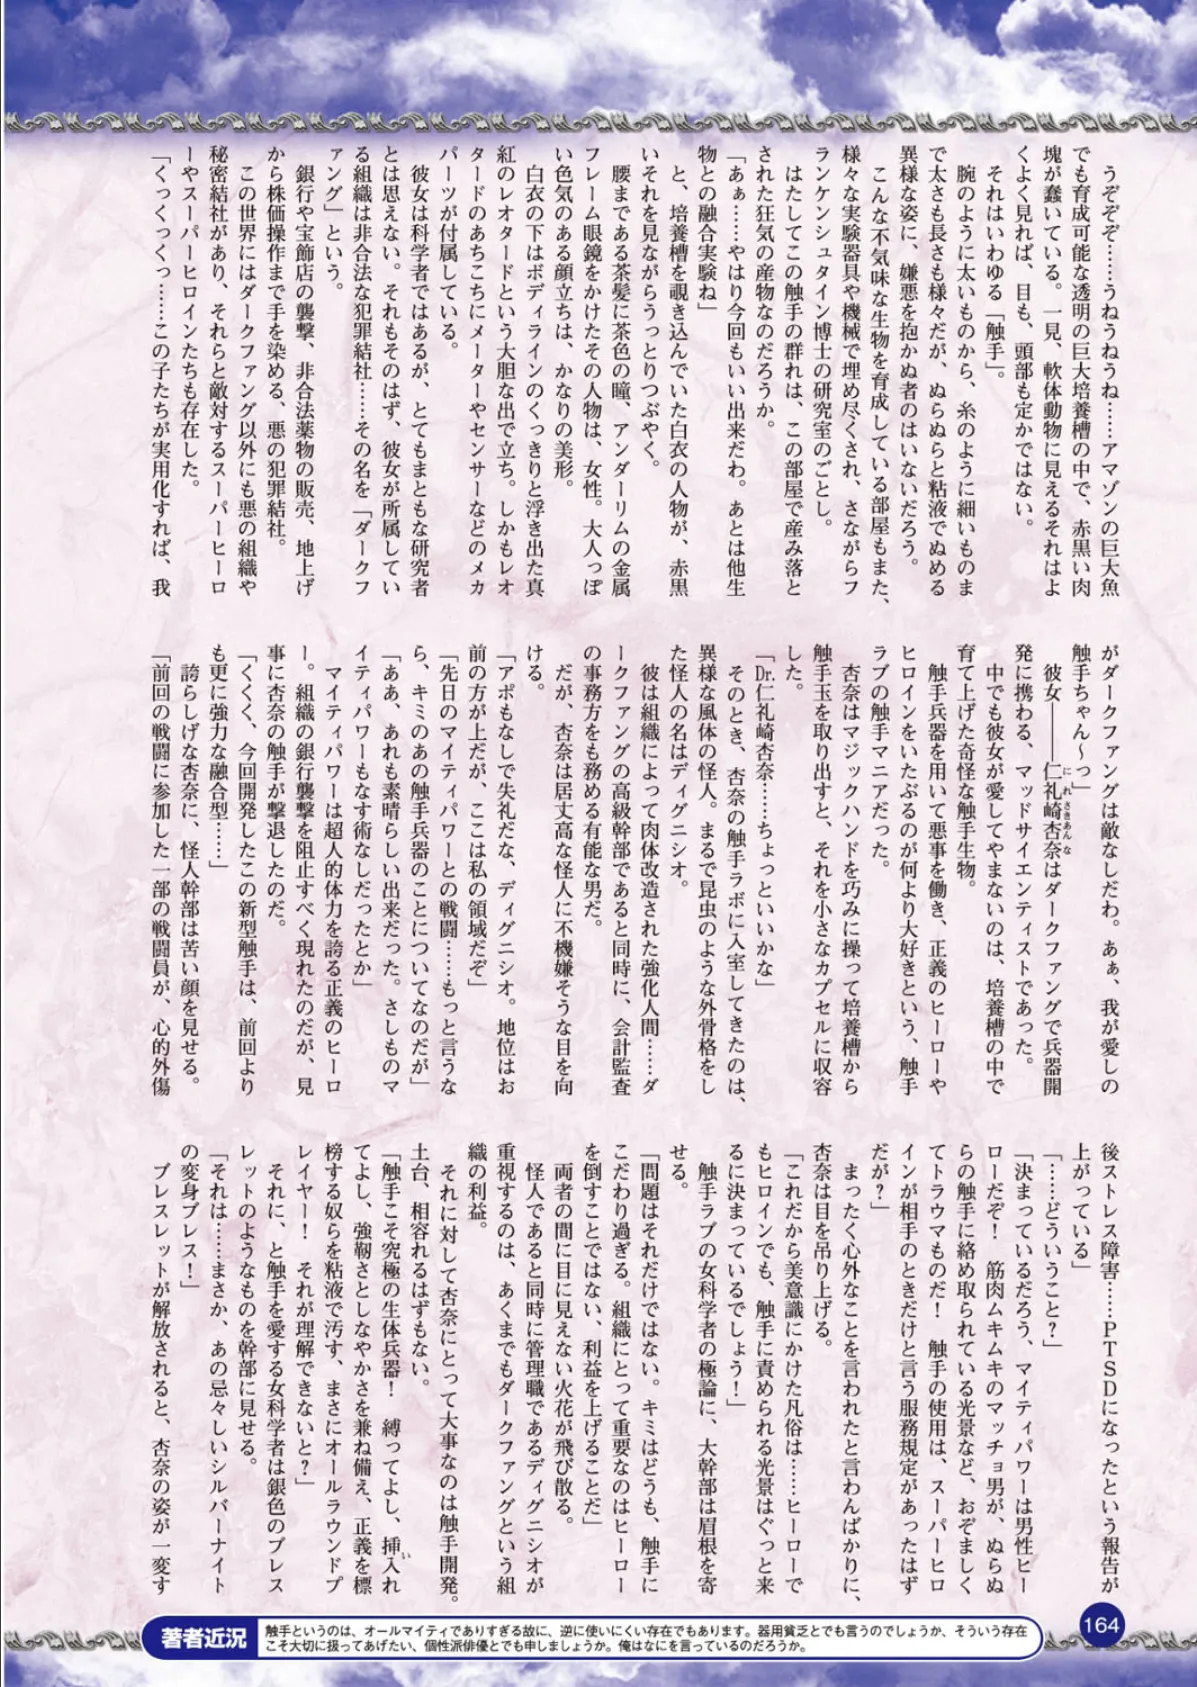 うぞぞぞ……うねうねうね……アマゾンの巨大魚
でも育成可能な透明の巨大培養槽の中で、赤黒い肉
塊が蠢いている。一見、軟体動物に見えるそれはよ
くよく見れば、目も、頭部も定かではない。
それはいわゆる「触手」。
腕のように太いものから、糸のように細いものま
で太さも長さも様々だが、ぬらぬらと粘液でぬめる
異様な姿に、嫌悪を抱かぬ者のはいないだろう。
こんな不気味な生物を育成している部屋もまた、
様々な実験器具や機械で埋め尽くされ、さながらフ
ランケンシュタイン博士の研究室のごとし。
はたしてこの触手の群れは、この部屋で産み落と
された狂気の産物なのだろうか。
「あぁ……やはり今回もいい出来だわ。あとは他生
物との融合実験ね」
と、培養槽を覗き込んでいた白衣の人物が、赤黒
いそれを見ながらうっとりつぶやく。
腰まである茶髪に茶色の瞳、アンダーリムの金属
フレーム眼鏡をかけたその人物は、女性。大人っぽ
い色気のある顔立ちは、かなりの美形。
白衣の下はボディラインのくっきりと浮き出た真
紅のレオタードという大胆な出で立ち。しかもレオ
タードのあちこちにメーターやセンサーなどのメカ
パーツが付属している。
彼女は科学者ではあるが、とてもまともな研究者
とは思えない。それもそのはず、彼女が所属してい
る組織は非合法な犯罪結社……その名を「ダークフ
ァング」という。
銀行や宝飾店の襲撃、非合法薬物の販売、地上げ
から株価操作まで手を染める、悪の犯罪結社。
この世界にはダークファング以外にも悪の組織や
秘密結社があり、それらと敵対するスーパーヒーロ
ーやスーパーヒロインたちも存在した。
「くっくっくっ……この子たちが実用化すれば、我
がダークファングは敵なしだわ。あぁ、我が愛しの
触手ちゃん～っ」
彼女――仁礼崎杏奈はダークファングで兵器開
にれさきあんな
発に携わる、マッドサイエンティストであった。
中でも彼女が愛してやまないのは、培養槽の中で
育て上げた奇怪な触手生物。
触手兵器を用いて悪事を働き、正義のヒーローや
ヒロインをいたぶるのが何より大好きという、触手
ラブの触手マニアだった。
杏奈はマジックハンドを巧みに操って培養槽から
触手玉を取り出すと、それを小さなカプセルに収容
した。
「Dr.仁礼崎杏奈……ちょっといいかな」
そのとき、杏奈の触手ラボに入室してきたのは、
異様な風体の怪人。まるで昆虫のような外骨格をし
た怪人の名はディグニシオ。
彼は組織によって肉体改造された強化人間……ダ
ークファングの高級幹部であると同時に、会計監査
の事務方をも務める有能な男だ。
だが、杏奈は居丈高な怪人に不機嫌そうな目を向
ける。
「アポもなしで失礼だな、ディグニシオ。地位はお
前の方が上だが、ここは私の領域だぞ」
「先日のマイティパワーとの戦闘……もっと言うな
ら、キミのあの触手兵器のことについてなのだが」
「ああ、あれも素晴らしい出来だった。さしものマ
イティパワーもなす術なしだったとか」
マイティパワーは超人的体力を誇る正義のヒーロ
ー。組織の銀行襲撃を阻止すべく現れたのだが、見
事に杏奈の触手が撃退したのだ。
「くくく、今回開発したこの新型触手は、前回より
も更に強力な融合型……」
誇らしげな杏奈に、怪人幹部は苦い顔を見せる。
「前回の戦闘に参加した一部の戦闘員が、心的外傷
後ストレス障害……PTSDになったという報告が
上がっている」
「……どういうこと？」
「決まっているだろう、マイティパワーは男性ヒー
ローだぞ！　筋肉ムキムキのマッチョ男が、ぬらぬ
らの触手に絡め取られている光景など、おぞましく
てトラウマものだ！　触手の使用は、スーパーヒロ
インが相手のときだけと言う服務規定があったはず
だが？」
まったく心外なことを言われたと言わんばかりに、
杏奈は目を吊り上げる。
「これだから美意識にかけた凡俗は……ヒーローで
もヒロインでも、触手に責められる光景はぐっと来
るに決まっているでしょう！」
触手ラブの女科学者の極論に、大幹部は眉根を寄
せる。
「問題はそれだけではない。キミはどうも、触手に
こだわり過ぎる。組織にとって重要なのはヒーロー
を倒すことではない、利益を上げることだ」
両者の間に目に見えない火花が飛び散る。
怪人であると同時に管理職であるディグニシオが
重視するのは、あくまでもダークファングという組
織の利益。
それに対して杏奈にとって大事なのは触手開発。
土台、相容れるはずもない。
「触手こそ究極の生体兵器！　縛ってよし、挿入れ
い
てよし、強靭さとしなやかさを兼ね備え、正義を標
榜する奴らを粘液で汚す、まさにオールラウンドプ
レイヤー！　それが理解できないと？」
それに、と触手を愛する女科学者は銀色のブレス
レットのようなものを幹部に見せる。
「それは……まさか、あの忌々しいシルバーナイト
の変身ブレス！」
ブレスレットが解放されると、杏奈の姿が一変す
164
著者近況
触手というのは、オールマイティでありすぎる故に、逆に使いにくい存在でもあります。器用貧乏とでも言うのでしょうか、そういう存在
こそ大切に扱ってあげたい、個性派俳優とでも申しましょうか。俺はなにを言っているのだろうか。